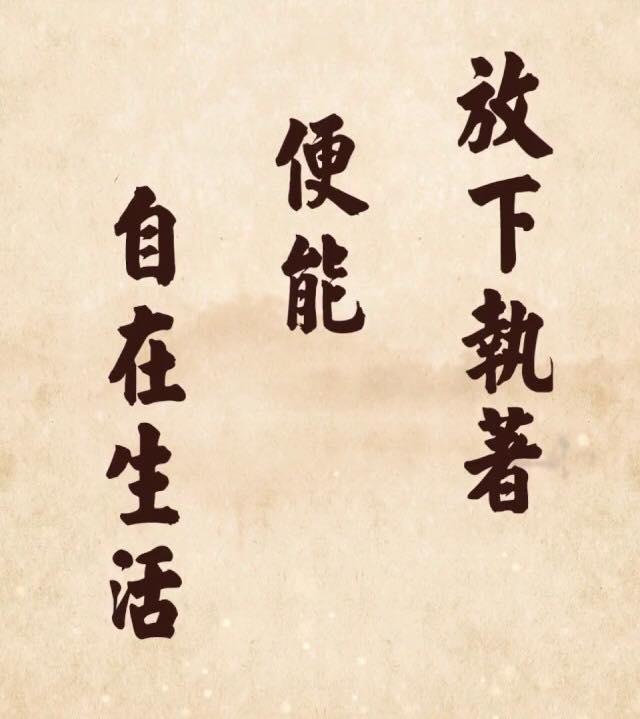 放下執著
便能
自在生活